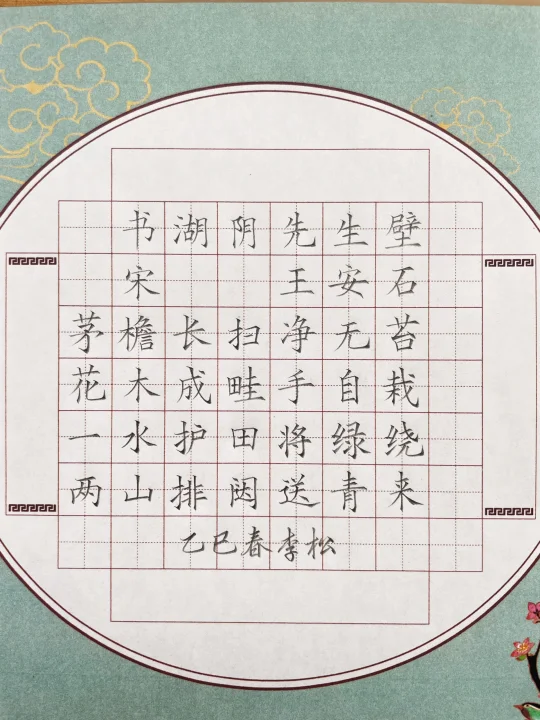 书湖阴先生壁
宋 王安石
茅檐长扫净无苔
花木成畦手自栽
一水护田将绿绕
两山排闼送青来
乙巳春李松